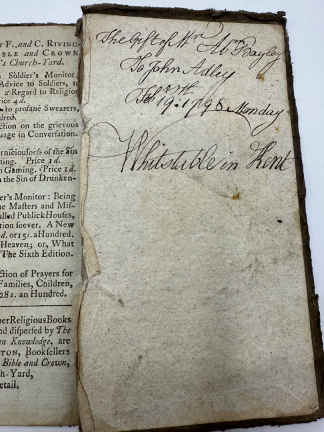 F. and C. RIVING
BLE and CROWN
's Church-Yard.
Soldier's Monitor.
Advice to Soldiers, to
a Regard to Religio
rice 4d.
to profane Swearers,
ndred.
ction on the grievous
uage in Conversation.
erniciousness of the Sin
ming. Price 1d.
n Gaming. Price 1d.
n the Sin of Drunken-
er's Monitor: Being
he Masters and Mis-
alled Publick Houses,
tion soever. A New
d. or 15s. a Hundred.
Heaven; or, What
The Sixth Edition.
ction of Prayers for
Families, Children,
28s. an Hundred.
her Religious Books
nd dispersed by The
n Knowledge, are
TON, Booksellers
Bible and Crown,
h-Yard,
etail,
The Gift of Mr
To John Adley
19. 1798 Monday
Whitstable in Kent